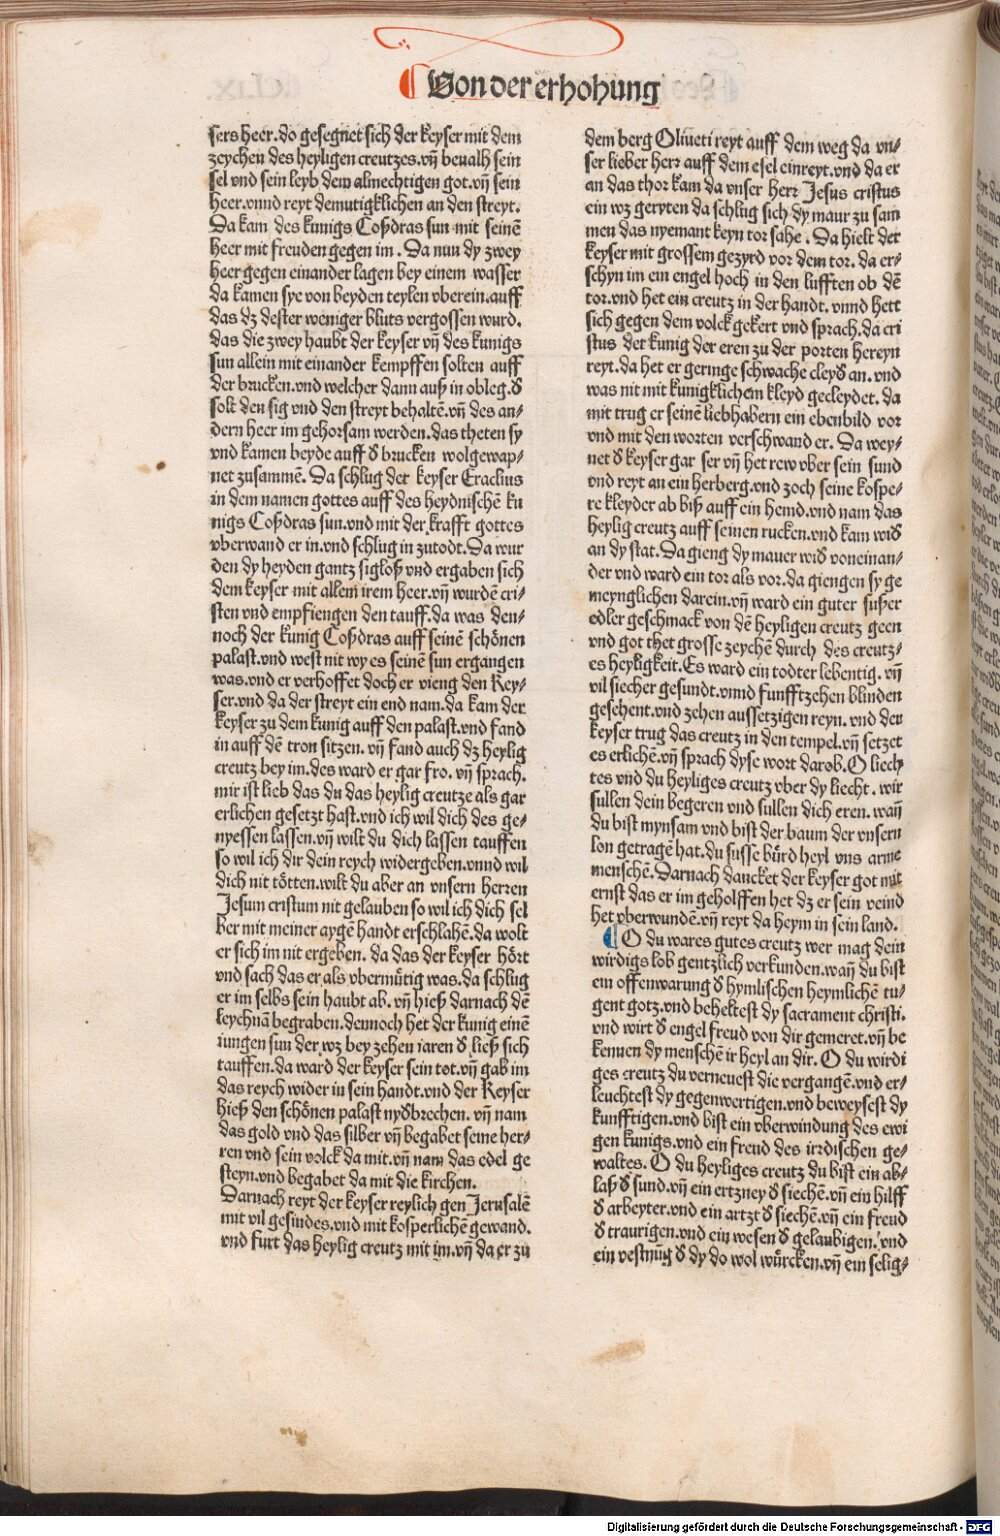 Von der erhohung
sers heer.do gesegnet sich der keyser mit dem
zeychen des heyligen creutzes.vñ beualh sein
sel vnd sein leyb dem almechtigen got.vñ sein
heer.vnnd reyt demutigklichen an den streyt.
Da kam des kunigs Coßdras sun mit seinē
heer mit freuden gegen im. Da nun dy zwey
heer gegen einander lagen bey einem wasser
da kamen sye von beyden teylen vberein.auff
das dz dester weniger bluts vergossen wurd.
das die zwey haubt der keyser vñ des kunigs
sun allein mit einander kempffen solten auff
der brucken.vnd welcher dann auß in obleg.d̕
solt den sig vnd den streyt behaltē.vñ des an⸗
dern heer im gehorsam werden.das theten sy
vnd kamen beyde auff d̕ brucken wolgewap⸗
net zusammē. Da schlug der keyser Eraclius
in dem namen gottes auff des heydnischē ku
nigs Coßdras sun.vnd mit der krafft gottes
vberwand er in.vnd schlug in zutodt.Da wur
den dy heyden gantz sigloß vnd ergaben sich
dem keyser mit allem irem heer.vñ wurdē cri⸗
sten vnd empfiengen den tauff.da was den⸗
noch der kunig Coßdras auff seinē schönen
palast.vnd west nit wy es seinē sun ergangen
was.vnd er verhoffet doch er vieng den Key⸗
ser.vnd da der streyt ein end nam.da kam der
keyser zu dem kunig auff den palast.vnd fand
in auff dē tron sitzen. vñ fand auch dz heylig
creutz bey im.des ward er gar fro. vñ sprach.
mir ist lieb das du das heylig creutze als gar
erlichen gesetzt hast.vnd ich wil dich des ge⸗
nyessen lassen.vñ wilt du dich lassen tauffen
so wil ich dir dein reych widergeben.vnnd wil
dich nit tötten.wilt du aber an vnsern herren
Jesum cristum nit gelauben so wil ich dich sel
ber mit meiner aygē handt erschlahē.da wolt
er sich im nit ergeben. da das der keyser hört
vnd sach das er als vbermütig was.da schlug
er im selbs sein haubt ab. vñ hieß darnach dē
leychnā begraben.dennoch het der kunig einē
iungen sun der wz bey zehen iaren d̕ ließ sich
tauffen.da ward der keyser sein tot.vñ gab im
das reych wider in sein handt.vnd der Keyser
hieß den schönen palast nyd̕brechen. vñ nam
das gold vnd das silber vñ begabet seine her⸗
ren vnd sein volck da mit.vñ nam das edel ge
steyn.vnd begabet da mit die kirchen.
Darnach reyt der keyser reylich gen Jerusalē
mit vil gesindes.vnd mit kosperlichē gewand.
vnd furt das heylig creutz mit im.vñ da er zu
dem berg Oliueti reyt auff dem weg da vn⸗
ser lieber herr auff dem esel einreyt.vnd da er
an das thor kam da vnser herr Jesus cristus
ein wz geryten da schlug sich dy maur zu sam
men das nyemant keyn tor sahe. Da hielt der
keyser mit grossem gezyrd vor dem tor. da er⸗
schyn im ein engel hoch in den lufften ob dē
tor.vnd het ein creutz in der handt. vnnd hett
sich gegen dem volck gekert vnd sprach.da cri
stus der kunig der eren zu der porten hereyn
reyt.da het er geringe schwache cleyd̕ an.vnd
was nit mit kunigklichem kleyd gecleydet. da
mit trug er seinē liebhabern ein ebenbild vor
vnd mit den worten verschwand er. Da wey⸗
net d̕ keyser gar ser vñ het rew vber sein sund
vnd reyt an ein herberg.vnd zoch seine kospe⸗
re kleyder ab biß auff ein hemd.vnd nam das
heylig creutz auff seinen rucken.vnd kam wid̕
an dy stat. Da gieng dy mauer wid̕ voneinan⸗
der vnd ward ein tor als vor.da giengen sy ge
meynglichen darein.vñ ward ein guter susser
edler geschmack von dē heyligen creutz geen
vnd got thet grosse zeychē durch des creutz⸗
es heyligkeit.Es ward ein todter lebentig. vñ
vil siecher gesundt.vnnd funfftzehen blinden
gesehent.vnd zehen aussetzigen reyn. vnd der
keyser trug das creutz in den tempel.vñ setzet
es erlichē.vñ sprach dyse wort darob.O liech
tes vnd du heyliges creutz vber dy liecht. wir
sullen dein begeren vnd sullen dich eren. wañ
du bist mynsam vnd bist der baum der vnsern
lon getragē hat.du susse bürd heyl vns arme
menschē. Darnach dancket der keyser got mit
ernst das er im geholffen het dz er sein veind
het vberwundē.vñ reyt da heym in sein land.
O du wares gutes creutz wer mag dein
wirdigs lob gentzlich verkunden.wañ du bist
ein offenwarung d̕ hymlischen heymlichē tu⸗
gent gotz.vnd beheltest dy sacrament christi.
vnd wirt d̕ engel freud von dir gemeret.vñ be
kennen dy menschē ir heyl an dir. O du wirdi
ges creutz du verneuest die vergangē.vnd er⸗
leuchtest dy gegenwertigen.vnd beweysest dy
kunfftigen.vnd bist ein vberwindung des ewi
gen kunigs.vnd ein freud des irdischen ge⸗
waltes. O du heyliges creutz du bist ein ab⸗
laß d̕ sund.vñ ein ertzney d̕ siechē.vñ ein hilff
d̕ arbeyter.vnd ein artzt d̕ siechē.vñ ein freud
d̕ traurigen.vnd ein wesen d̕ gelaubigen.vnd
ein vestnūg d̕ dy do wol würcken.vñ ein selig⸗
Digitalisierung gefördert durch die Deutsche Forschungsgemeinschaft - DFG